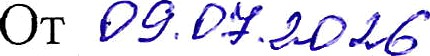 От 09.07.2026